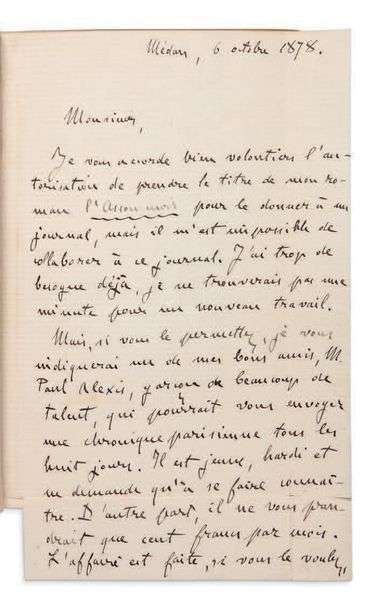 Médan, 6 octobre 1878.
Monsieur,
Je vous accorde bien volontiers l'au-
torisation de prendre le titre de mon ro-
man l'Assommoir pour le donner à un
journal, mais il m'est impossible de
collaborer à ce journal. J'ai trop de
besogne déjà, je ne trouverais pas une
minute pour un nouveau travail.
Mais, si vous le permettez, je vous
indiquerai un de mes bons amis, M.
Paul Alexis, garçon de beaucoup de
talent, qui pourrait vous envoyer
une chronique parisienne tous les
huit jours. Il est jeune, hardi et
ne demande qu'à se faire connaî-
tre. D'autre part, il ne vous pren-
drait que cent francs par mois.
L'affaire est faite, si vous le voulez,